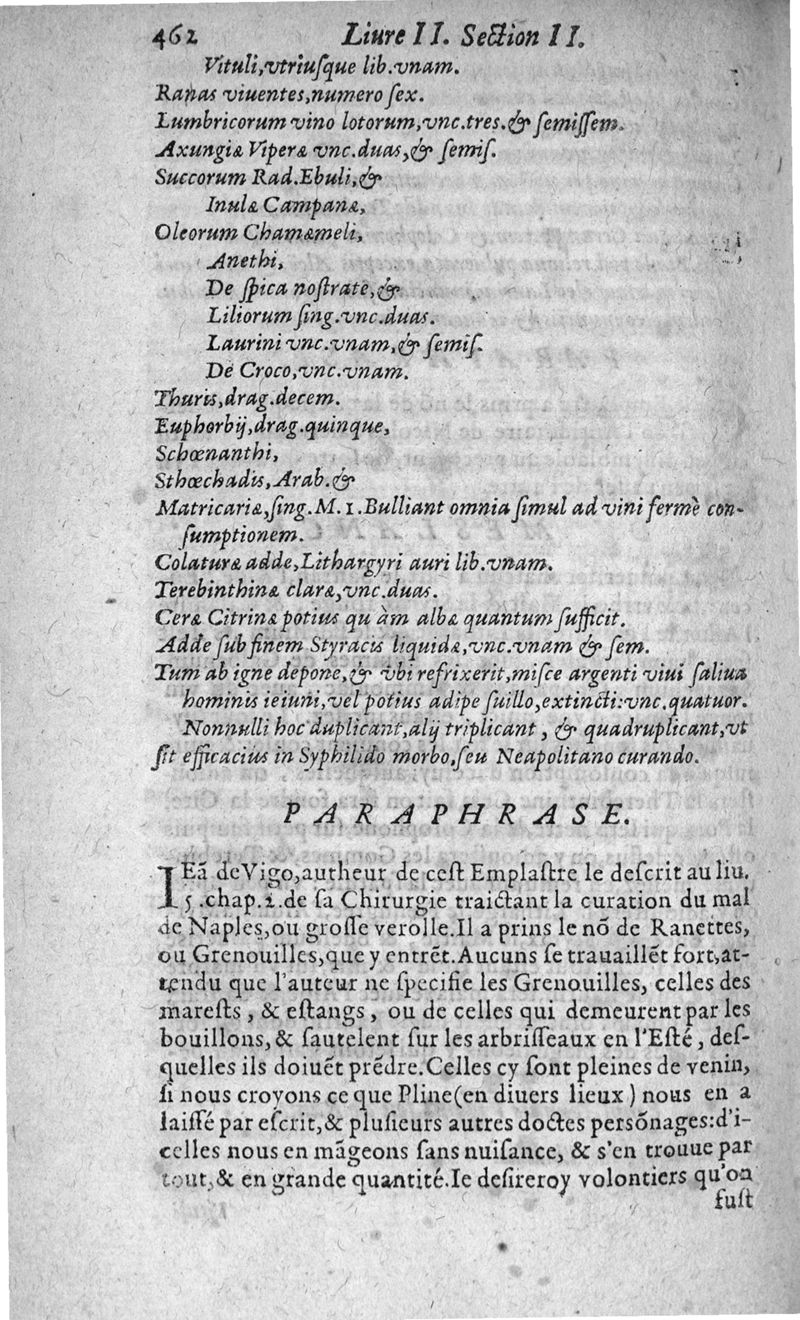 462 Liure II. Section II.
Vituli,vtriuſque lib.vnam.
Ranas viuentes,numero ſex.
Lumbricorum vino lotorum,vnc.tres.& ſemiſſem.
Axungiæ Viperæ vnc.duas,& ſemiſ.
Succorum Rad.Ebuli,&
Inulæ Campanæ,
Oleorum Chamæmeli,
Anethi,
De ſpica noſtrate,&
Liliorum ſing.vnc.duas.
Laurini vnc.vnam,& ſemiſ.
De Croco,vnc.vnam.
Thuris,drag.decem.
Euphorbij,drag.quinque,
Schœnanthi,
Sthœchadis,Arab.&
Matricariæ,ſing.M.1.Bulliant omnia ſimul ad vini fermè con-
ſumptionem.
Colaturæ adde,Lithargyri auri lib.vnam.
Terebinthinæ claræ,vnc.duas.
Ceræ Citrinæ potius qu àm albæ quantum ſufficit.
Adde ſub finem Styracis liquidæ,vnc.vnam & ſem.
Tum ab igne depone,& vbi refrixerit,miſce argenti viui ſaliua
hominis ieiuni,vel potius adipe ſuillo,extincti:vnc.quatuor.
Nonnulli hoc duplicant,alij triplicant, & quadruplicant,vt
ſit efficacius in Syphilido morbo,ſeu Neapolitano curando.
PARAPHRASE.
IEã deVigo,autheur de ceſt Emplaſtre le deſcrit au liu.
5.chap.2.de ſa Chirurgie traictant la curation du mal
de Naples,ou groſſe verolle.Il a prins le nõ de Ranettes,
ou Grenouilles,que y entrẽt.Aucuns ſe trauaillẽt fort,at-
tendu que l'auteur ne ſpecifie les Grenouilles, celles des
mareſts, & eſtangs, ou de celles qui demeurent par les
bouillons,& ſautelent ſur les arbriſſeaux en l'Eſté, deſ-
quelles ils doiuẽt prẽdre.Celles cy ſont pleines de venin,
ſi nous croyons ce que Pline(en diuers lieux) nous en a
laiſſé par eſcrit,& pluſieurs autres doctes perſõnages:d'i-
celles nous en mãgeons ſans nuiſance, & s'en trouue par
tout,& en grande quantité.Ie deſireroy volontiers qu'on
fuſt